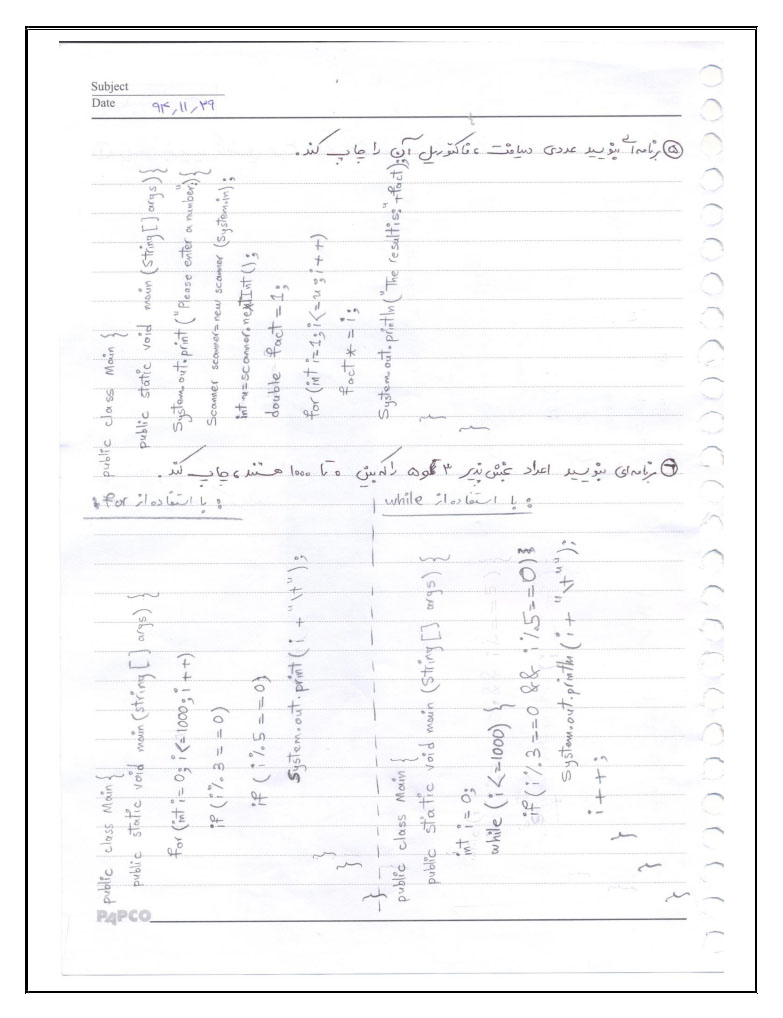 Subject
Date ۹۴,۱۱,۲۹
۵ برنامه ای بنویسید عددی دریافت ، فاکتوریل آن را چاپ کند.
public class Main {
public static void main (String[] args) {
System.out.print ("Please enter a number:");
Scanner scanner=new scanner (System.in);
int n=scanner.nextInt();
double fact=1;
for (int i=1; i<=n; i++)
fact *= i;
System.out.println("The result is:"+fact);
}
}
۶ برنامه ای بنویسید اعداد بخش پذیر ۳ و ۵ را که بین ۰ تا ۱۰۰۰ هستند ، چاپ کند.
با استفاده از for :
public class Main {
public static void main (string[] args) {
for (int i=0; i<=1000; i++)
if (i%3==0)
if (i%5==0)
System.out.print (i + "\t");
}
}
}
با استفاده از while :
public class Main {
public static void main (String[] args) {
int i=0;
while (i<=1000) {
if (i%3==0 && i%5==0)
System.out.println (i + "\t");
i++;
}
}
}
PAPCO